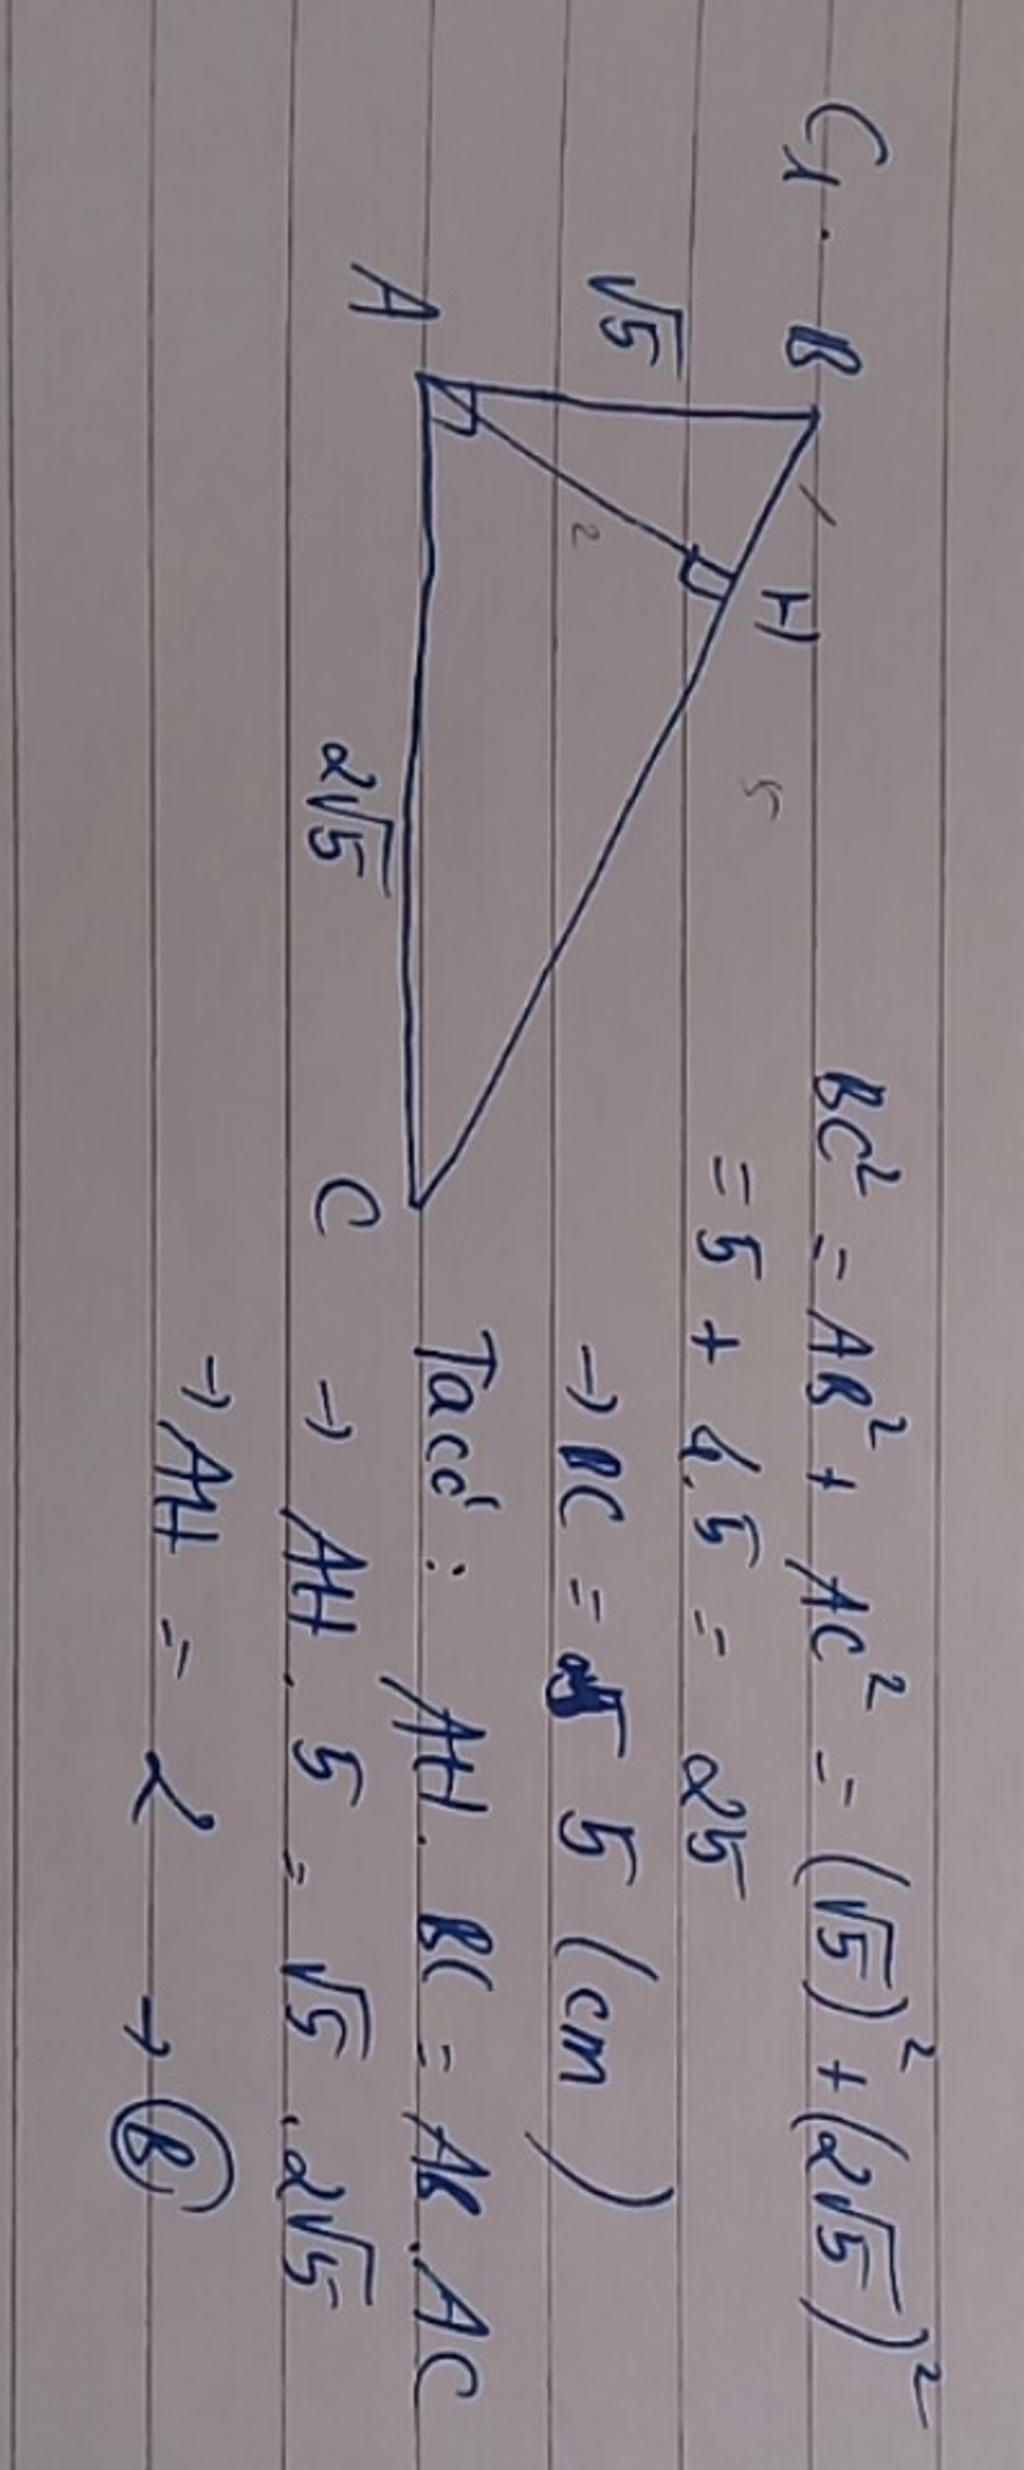 C1.
B
√5
A
H
1
2
5
2√5
C
BC² = AB² + AC² = (√5)² + (2√5)²
= 5 + 4.5 = 25
→ BC = 5 (cm)
Ta có: AH. BC = AB. AC
→ AH. 5 = √5 . 2√5
→ AH = 2 → B